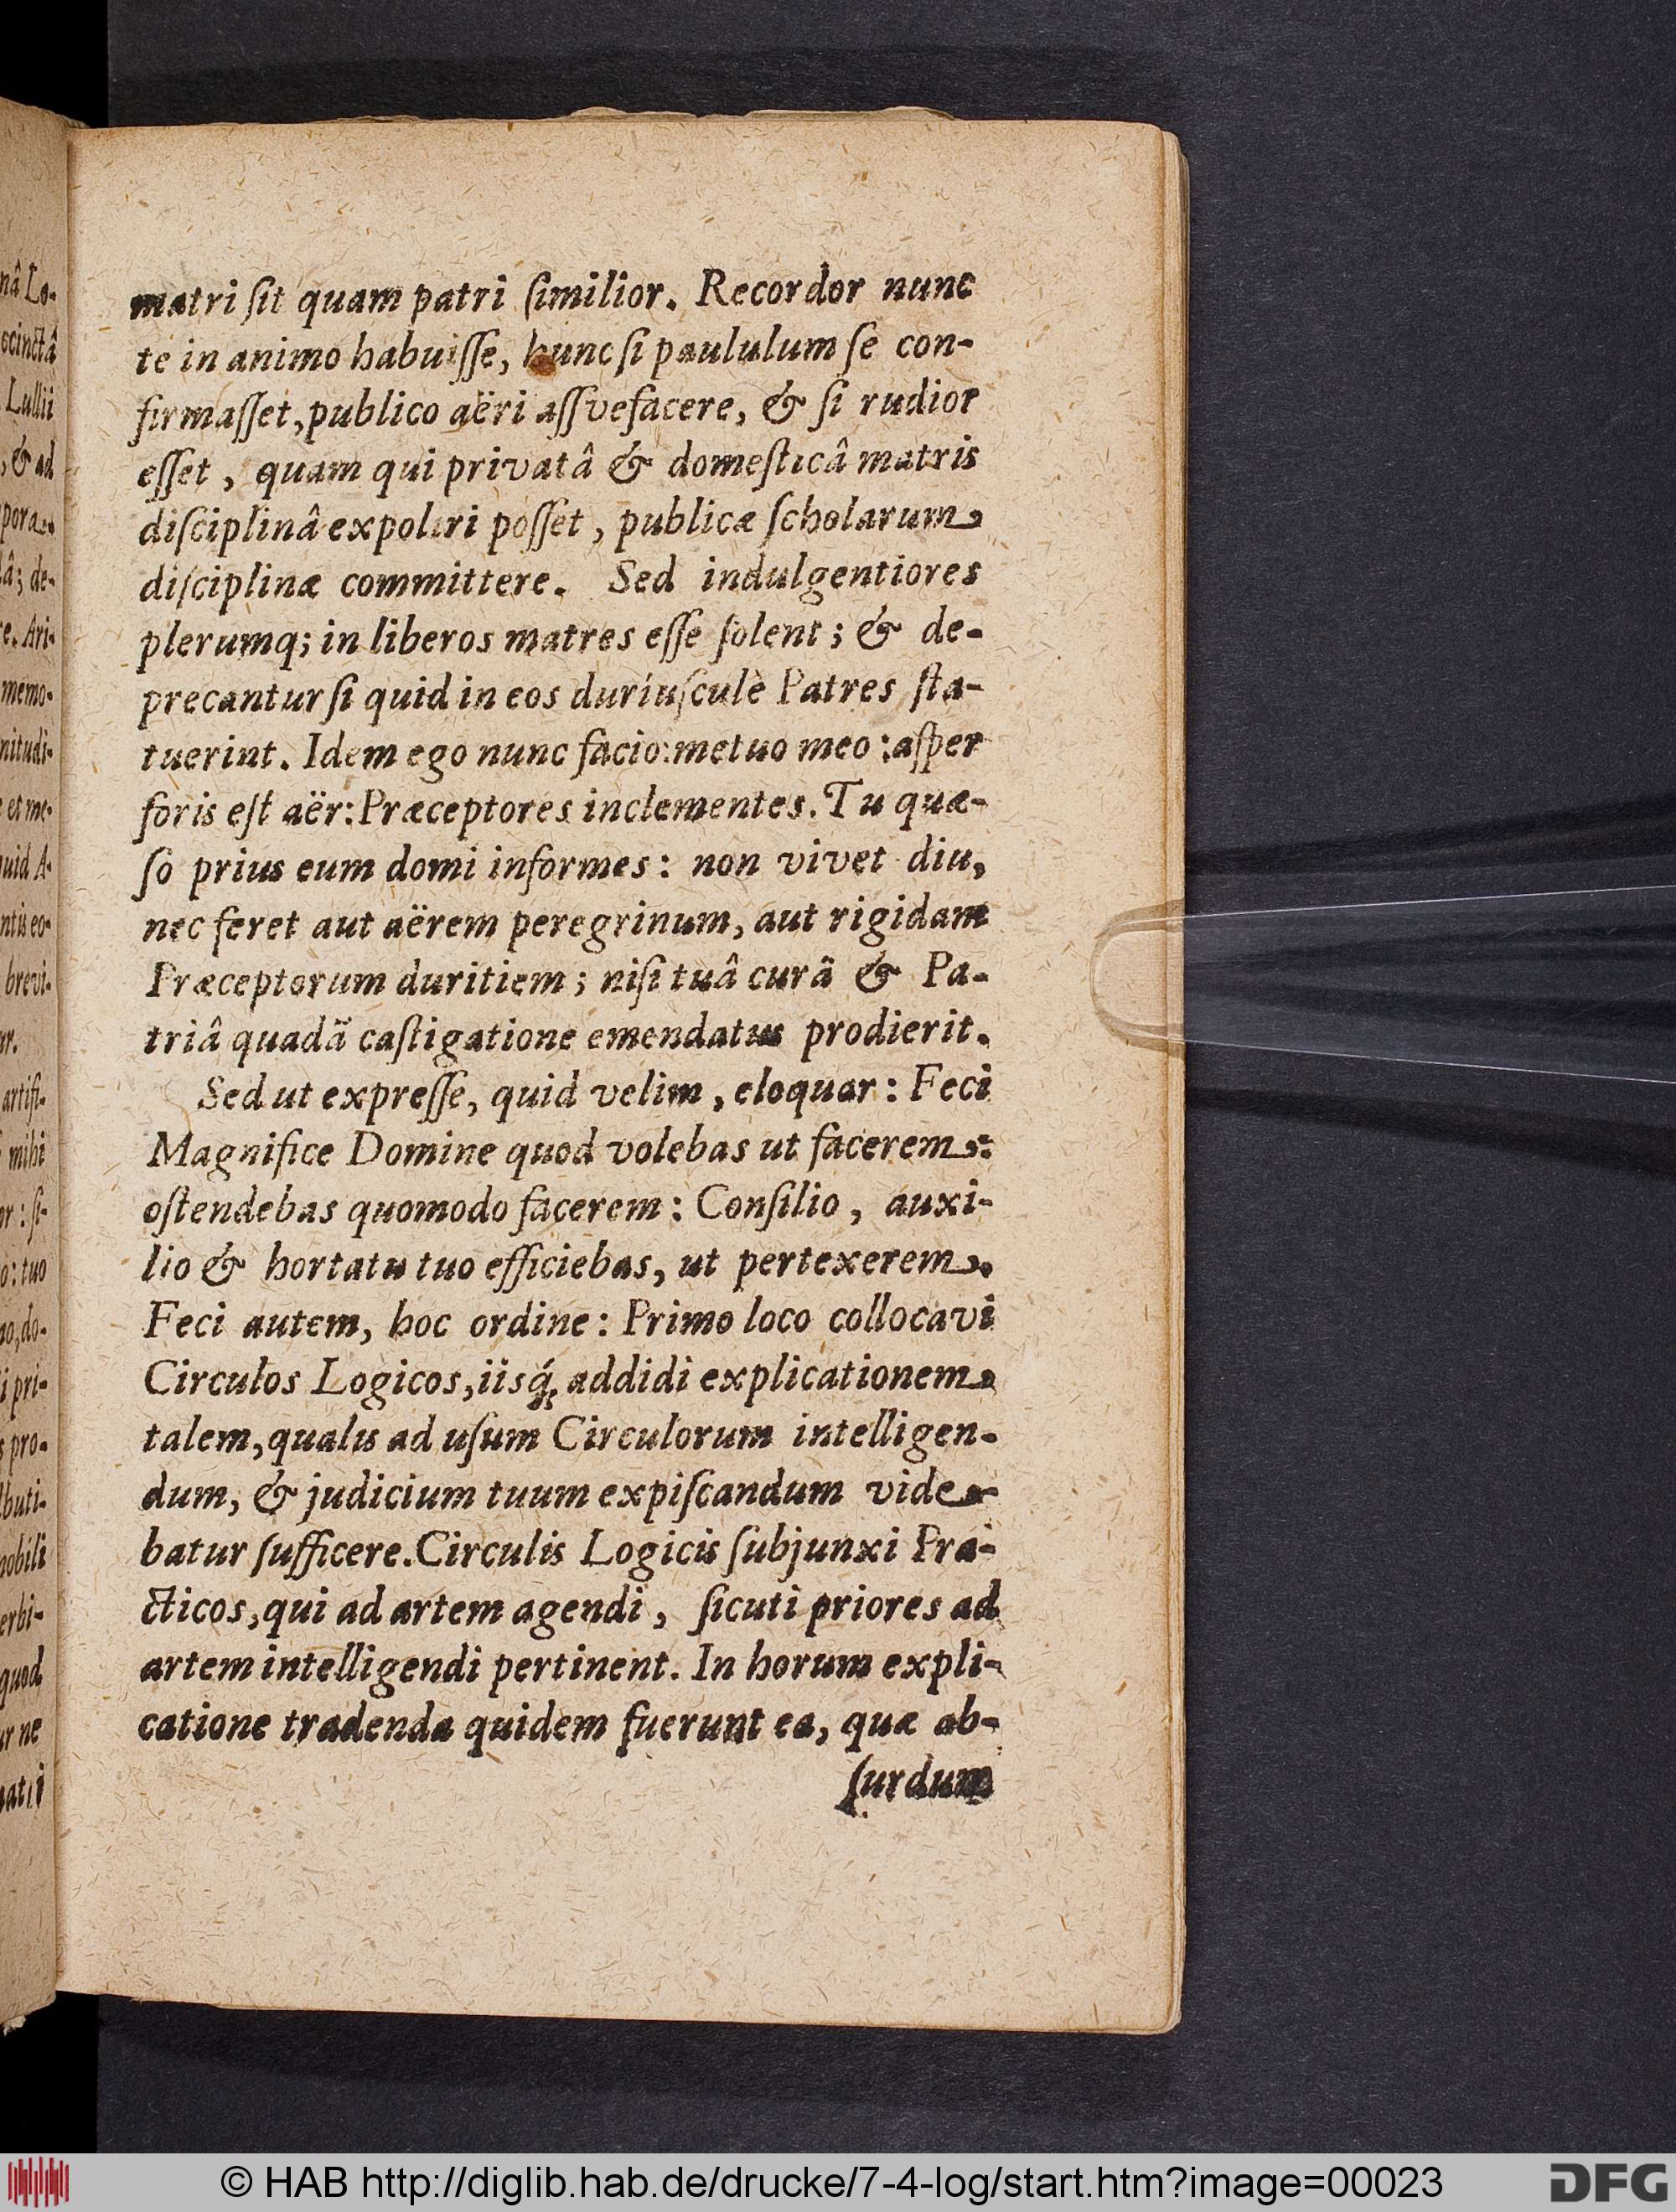 matri ſit quam patri ſimilior. Recordor nunc
te in animo habuiſſe, hunc ſi paululum ſe con-
firmaſſet, publico aëri aſſvefacere, & ſi rudior
eſſet, quam qui privatâ & domeſticâ matris
diſciplinâ expoliri poſſet, publicæ ſcholarum
diſciplinæ committere. Sed indulgentiores
plerumq; in liberos matres eſſe ſolent; & de-
precantur ſi quid in eos duriuſculè Patres ſta-
tuerint. Idem ego nunc facio: metuo meo: aſper
foris eſt aër: Præceptores inclementes. Tu quæ-
ſo prius eum domi informes: non vivet diu,
nec feret aut aërem peregrinum, aut rigidam
Præceptorum duritiem; niſi tuâ curâ & Pa-
triâ quadã caſtigatione emendatus prodierit.
Sed ut expreſſe, quid velim, eloquar: Feci
Magnifice Domine quod volebas ut facerem:
oſtendebas quomodo facerem: Conſilio, auxi-
lio & hortatu tuo efficiebas, ut pertexerem.
Feci autem, hoc ordine: Primo loco collocavi
Circulos Logicos, iisq́; addidi explicationem
talem, qualis ad uſum Circulorum intelligen-
dum, & judicium tuum expiſcandum vide-
batur ſufficere. Circulis Logicis ſubjunxi Pra-
cticos, qui ad artem agendi, ſicuti priores ad
artem intelligendi pertinent. In horum expli-
catione tradenda quidem fuerunt ea, quæ ab-
ſurdum
© HAB http://diglib.hab.de/drucke/7-4-log/start.htm?image=00023
DFG